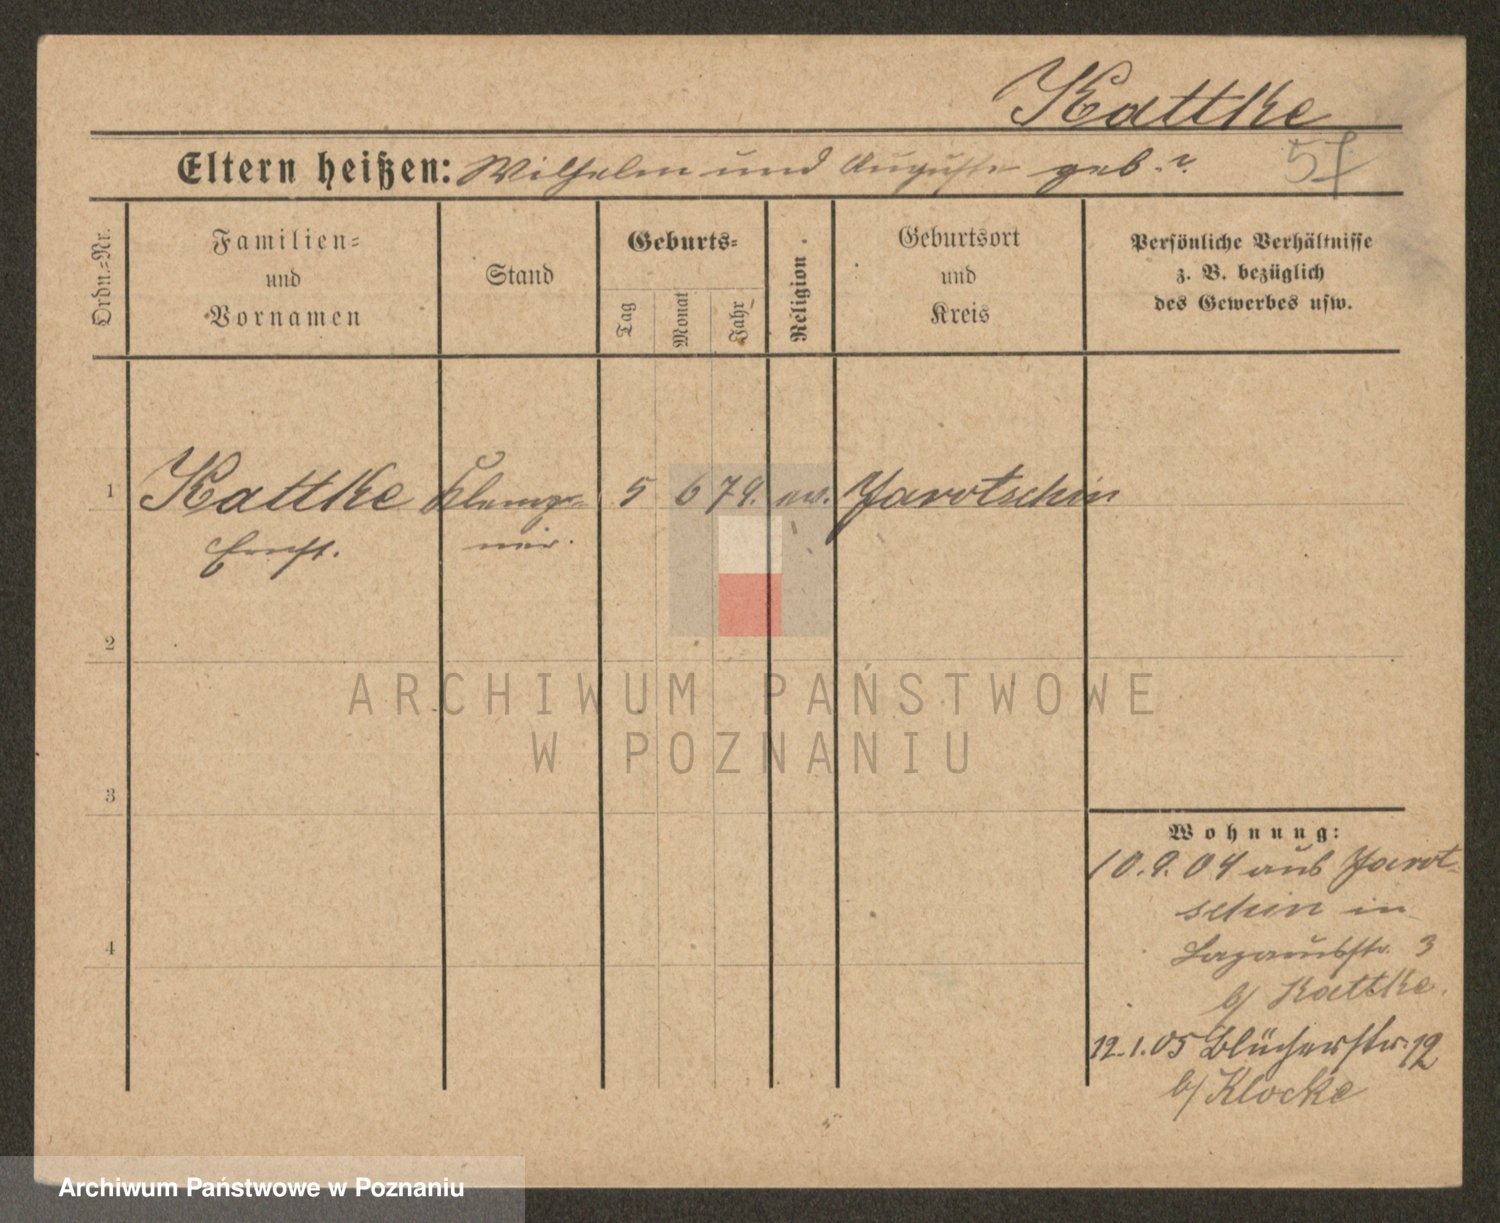 Kattke
Eltern heißen: Wilhelm und Auguste geb. ?
57
Ordn.=Nr.
Familien=
und
Vornamen
Stand
Geburts=
Tag
Monat
Jahr
Religion
Geburtsort
und
Kreis
Persönliche Verhältnisse
z. B. bezüglich
des Gewerbes usw.
1 Kattke Klemp- 5 6 79. ev. Jarotschin
Ernst. ner.
2
3
4
Wohnung:
10.9.04 aus Jarot-
schin in
Lazarusstr. 3
b/ Kattke.
12.1.05 Blücherstr. 12
b/ Klocke
ARCHIWUM PAŃSTWOWE
W POZNANIU
Archiwum Państwowe w Poznaniu